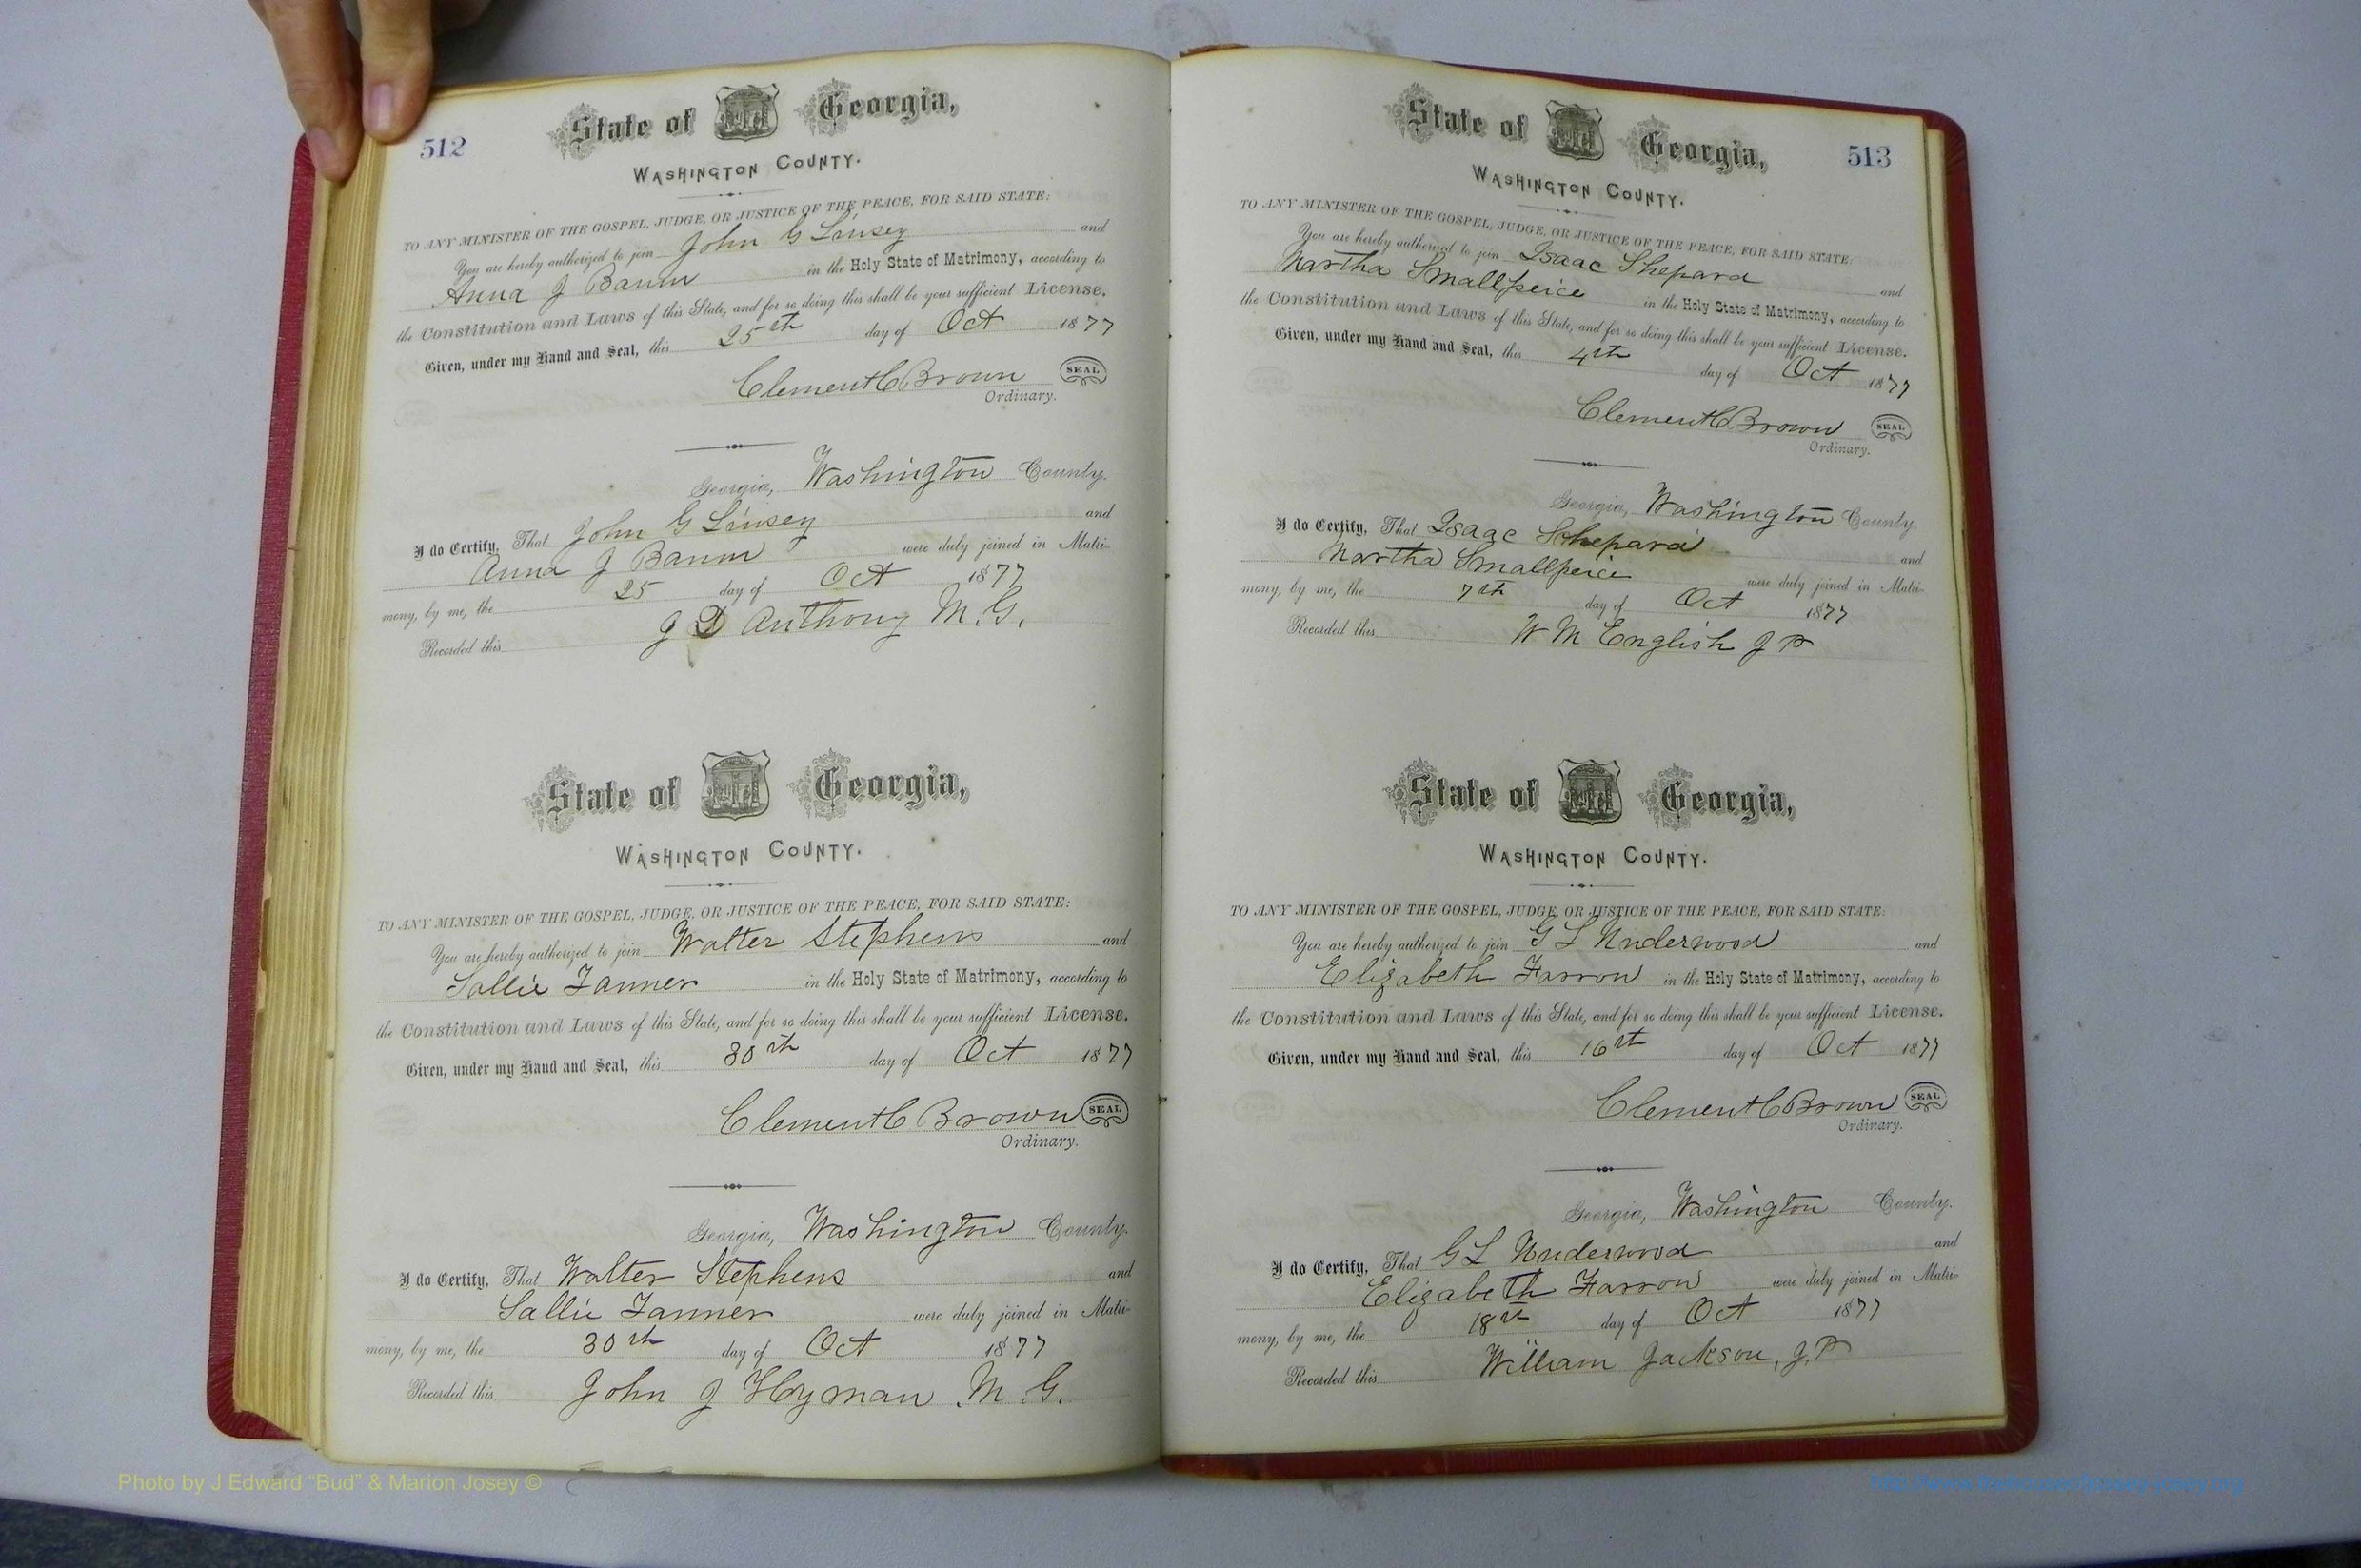 512
State of Georgia,
WASHINGTON COUNTY.
TO ANY MINISTER OF THE GOSPEL, JUDGE, OR JUSTICE OF THE PEACE, FOR SAID STATE:
You are hereby authorized to join John G Linsey and
Anna J in the Holy State of Matrimony, according to
the Constitution and Laws of this State, and for so doing this shall be your sufficient License.
Given, under my Hand and Seal, this 25th day of Oct 1877
Clement C Brown SEAL
Ordinary.
Georgia, Washington County.
I do Certify, That John G Linsey and
Anna J were duly joined in Matri-
mony, by me, the 25 day of Oct 1877
Recorded this J D Anthony M.G.
State of Georgia,
WASHINGTON COUNTY.
TO ANY MINISTER OF THE GOSPEL, JUDGE, OR JUSTICE OF THE PEACE, FOR SAID STATE:
You are hereby authorized to join Walter Stephens and
Sallie Tanner in the Holy State of Matrimony, according to
the Constitution and Laws of this State, and for so doing this shall be your sufficient License.
Given, under my Hand and Seal, this 30th day of Oct 1877
Clement C Brown SEAL
Ordinary.
Georgia, Washington County.
I do Certify, That Walter Stephens and
Sallie Tanner were duly joined in Matri-
mony, by me, the 30th day of Oct 1877
Recorded this John J Hyman M.G.
513
State of Georgia,
WASHINGTON COUNTY.
TO ANY MINISTER OF THE GOSPEL, JUDGE, OR JUSTICE OF THE PEACE, FOR SAID STATE:
You are hereby authorized to join Isaac Shepard and
Martha Smallpeice in the Holy State of Matrimony, according to
the Constitution and Laws of this State, and for so doing this shall be your sufficient License.
Given, under my Hand and Seal, this 4th day of Oct 1877
Clement C Brown SEAL
Ordinary.
Georgia, Washington County.
I do Certify, That Isaac Shepard and
Martha Smallpeice were duly joined in Matri-
mony, by me, the 7th day of Oct 1877
Recorded this W M English J P
State of Georgia,
WASHINGTON COUNTY.
TO ANY MINISTER OF THE GOSPEL, JUDGE, OR JUSTICE OF THE PEACE, FOR SAID STATE:
You are hereby authorized to join G L Underwood and
Elizabeth Farrow in the Holy State of Matrimony, according to
the Constitution and Laws of this State, and for so doing this shall be your sufficient License.
Given, under my Hand and Seal, this 16th day of Oct 1877
Clement C Brown SEAL
Ordinary.
Georgia, Washington County.
I do Certify, That G L Underwood and
Elizabeth Farrow were duly joined in Matri-
mony, by me, the 18th day of Oct 1877
Recorded this William Jackson, J.P
Photo by J Edward "Bud" & Marion Josey ©